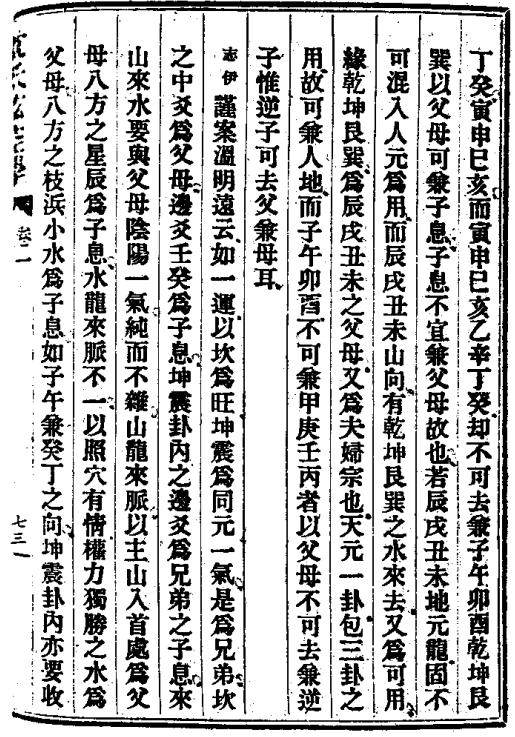 丁癸寅申巳亥而寅申巳亥乙辛丁癸却不可去兼子午卯酉乾坤艮
巽以父母可兼子息子息不宜兼父母故也若辰戌丑未地元龍固不
可混入人元爲用而辰戌丑未山向有乾坤艮巽之水來去又爲可用
緣乾坤艮巽爲辰戌丑未之父母又爲夫婦宗也天元一卦包三卦之
用故可兼人地而子午卯酉不可兼甲庚壬丙者以父母不可去兼逆
子惟逆子可去父兼母耳
志伊謹案溫明遠云如一運以坎爲旺坤震爲同元一氣是爲兄弟坎
之中爻爲父母邊爻壬癸爲子息坤震卦內之邊爻爲兄弟之子息來
山來水要與父母陰陽一氣純而不雜山龍來脈以主山入首處爲父
母八方之星辰爲子息水龍來脈不一以照穴有情權力獨勝之水爲
父母八方之枝浜小水爲子息如子午兼癸丁之向坤震卦內亦要收
卷二
七三